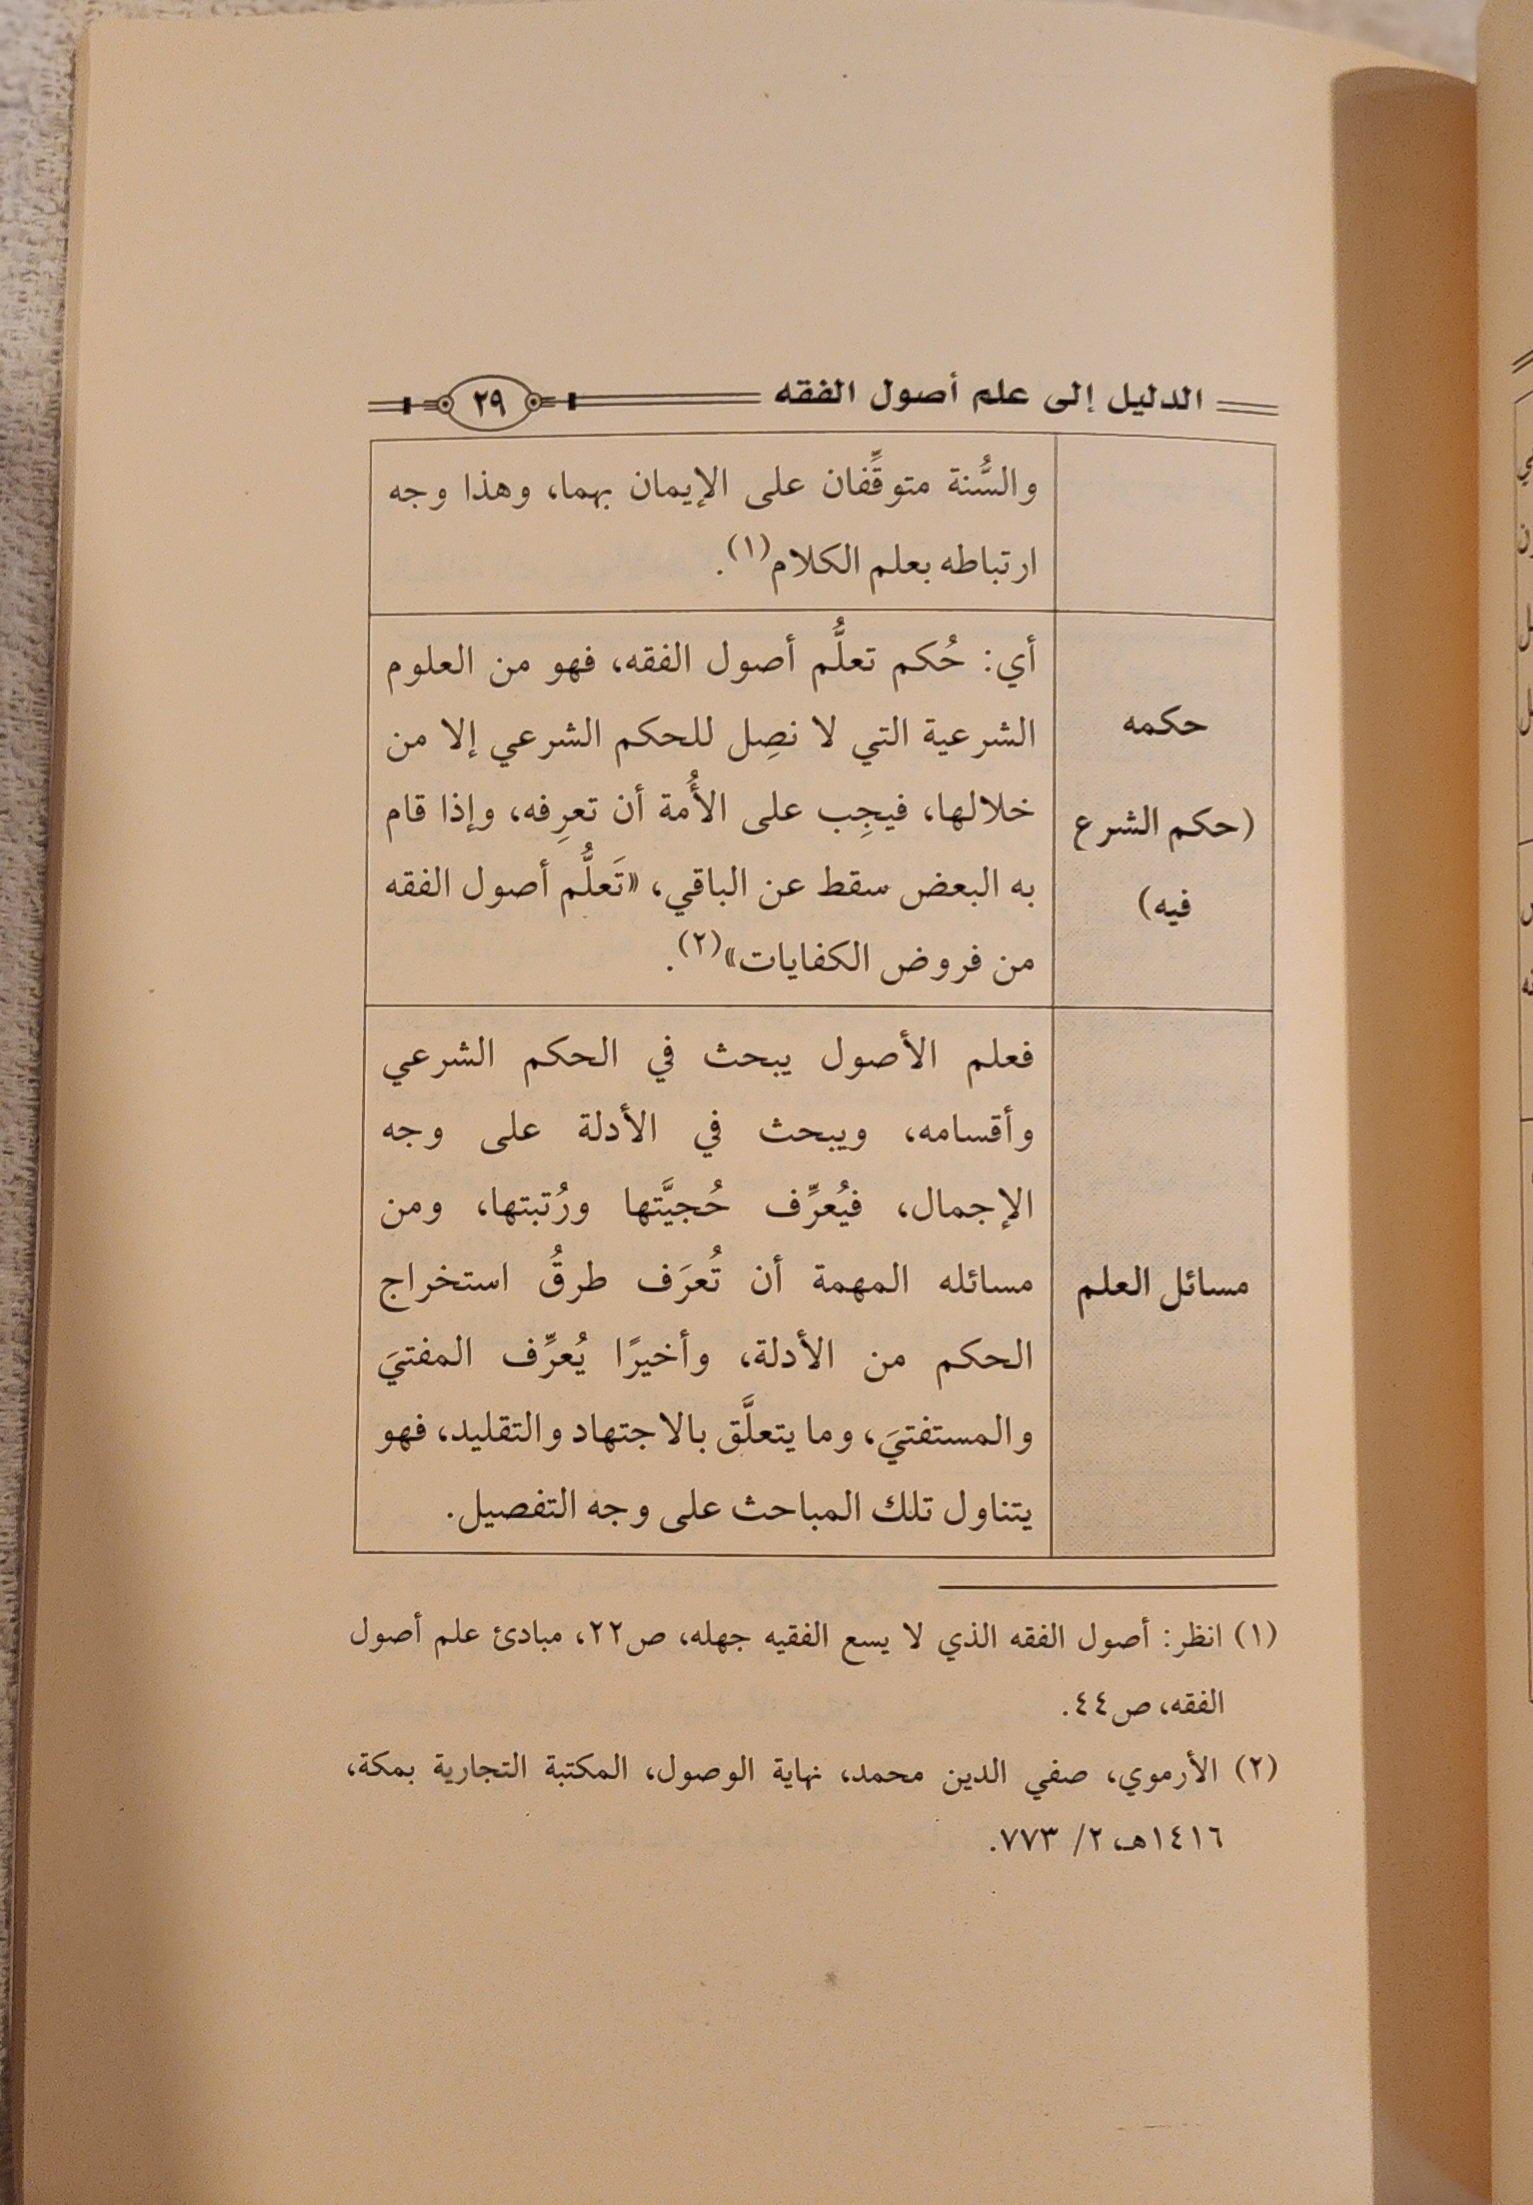 الدليل إلى علم أصول الفقه ٢٩
والسُّنة متوقِّفان على الإيمان بهما، وهذا وجه
ارتباطه بعلم الكلام(١).
حكمه
(حكم الشرع
فيه)
أي: حُكم تعلُّم أصول الفقه، فهو من العلوم
الشرعية التي لا نصِل للحكم الشرعي إلا من
خلالها، فيجِب على الأُمة أن تعرِفه، وإذا قام
به البعض سقط عن الباقي، «تَعلُّم أصول الفقه
من فروض الكفايات»(٢).
مسائل العلم
فعلم الأصول يبحث في الحكم الشرعي
وأقسامه، ويبحث في الأدلة على وجه
الإجمال، فيُعرِّف حُجيَّتها ورُتبتها، ومن
مسائله المهمة أن تُعرَف طرقُ استخراج
الحكم من الأدلة، وأخيرًا يُعرِّف المفتيَ
والمستفتيَ، وما يتعلَّق بالاجتهاد والتقليد، فهو
يتناول تلك المباحث على وجه التفصيل.
(١) انظر: أصول الفقه الذي لا يسع الفقيه جهله، ص٢٢، مبادئ علم أصول
الفقه، ص٤٤.
(٢) الأرموي، صفي الدين محمد، نهاية الوصول، المكتبة التجارية بمكة،
١٤١٦هـ، ٢/ ٧٧٣.